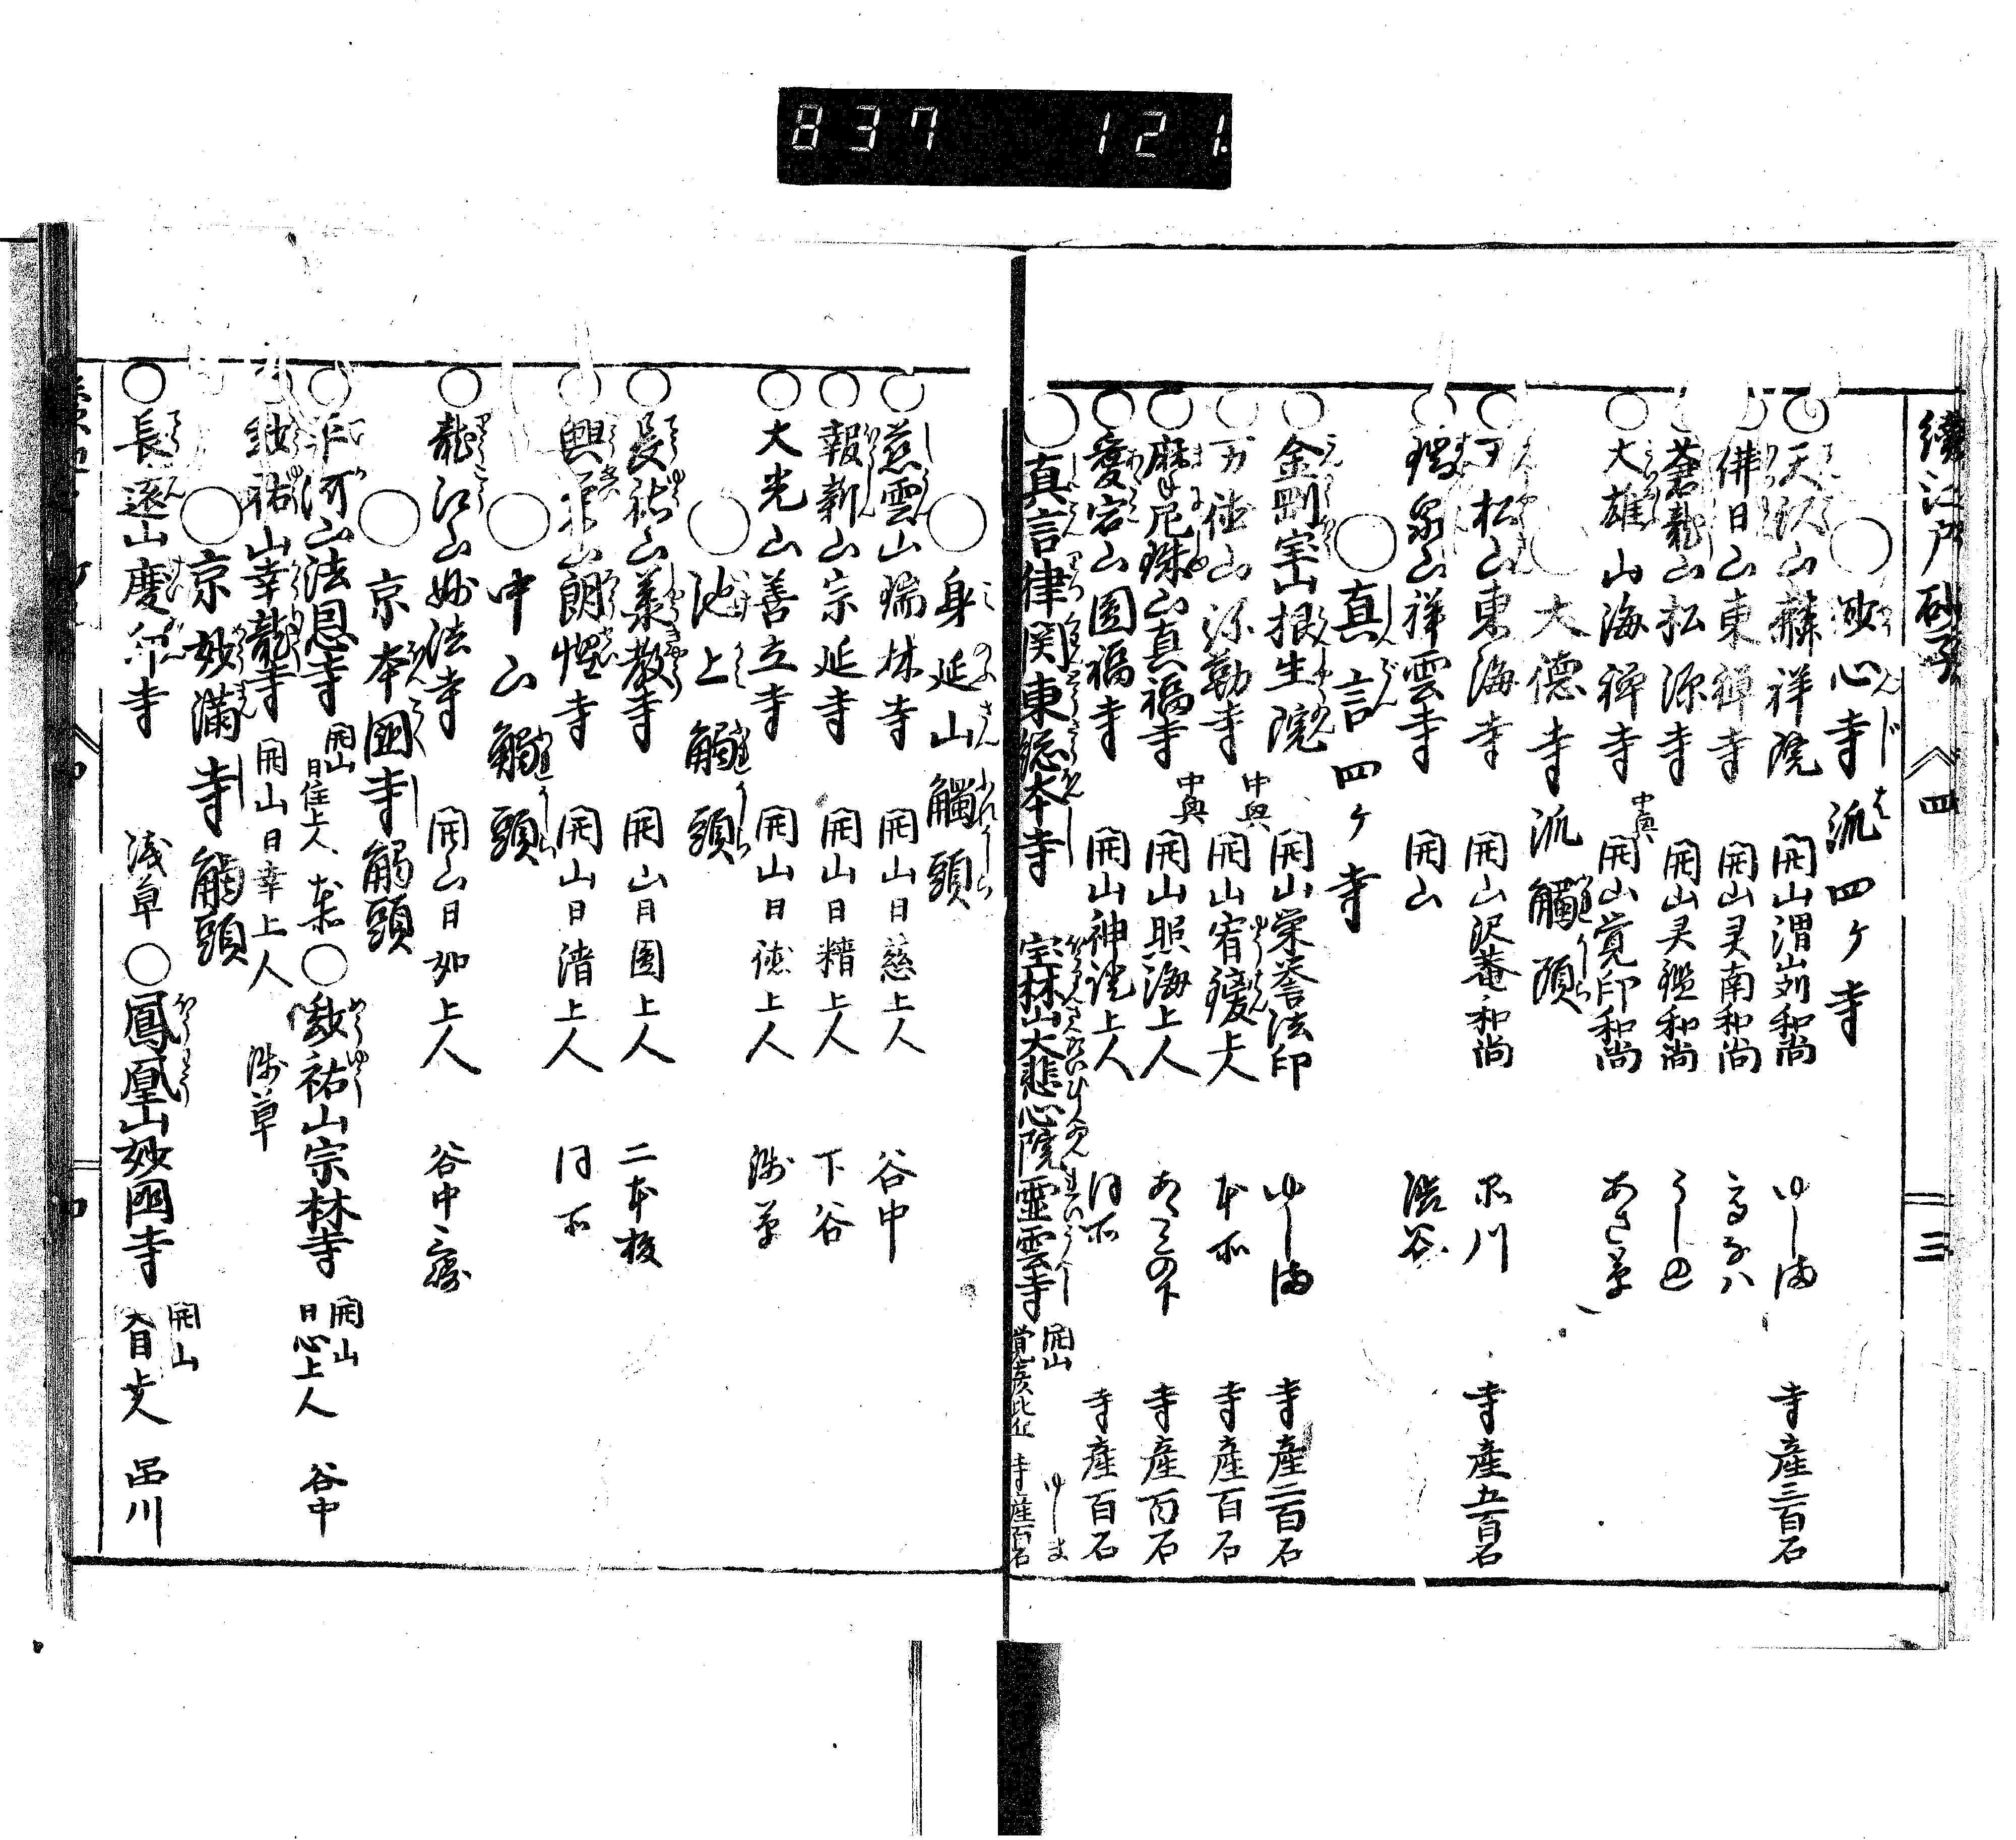 837 121
續江戸砂子 四 三
○妙心寺派四ケ寺
○天沢山麟祥院 開山渭川和尚 ゆしま 寺産三百石
佛日山東禅寺 開山灵南和尚 高なハ
蒼龍山松源寺 開山灵鑑和尚 うし込
○大雄山海禅寺 中興 開山覚印和尚 あさ草
○大徳寺派觸頭
○万松山東海寺 開山沢菴和尚 品川 寺産五百石
○瑞泉山祥雲寺 開山 渋谷
○真言四ケ寺
○金剛宝山根生院 開山栄誉法印 ゆしま 寺産二百石
○万徳山弥勒寺 中興 開山宥 上人 本所 寺産百石
○摩尼珠山真福寺 中興 開山照海上人 あたこの下 寺産百石
○愛宕山圓福寺 開山神 上人 同所 寺産百石
○真言律関東総本寺 宝林山大悲心院霊雲寺 開山覚彦比丘 ゆしま 寺産百石
○身延山觸頭
○慈雲山瑞林寺 開山日慈上人 谷中
○報新山宗延寺 開山日精上人 下谷
○大光山善立寺 開山日徳上人 浅草
○池上觸頭
○長祐山承教寺 開山日圓上人 二本榎
○興 山朗惺寺 開山日清上人 同所
○中山觸頭
○龍江山妙法寺 開山日如上人 谷中
○京本國寺觸頭
○平河山法恩寺 開山日住上人 本所 ○妙祐山宗林寺 開山日心上人 谷中
妙祐山幸龍寺 開山日幸上人 浅草
○京妙満寺觸頭
○長遠山慶印寺 浅草 ○鳳凰山妙國寺 開山 上人 品川